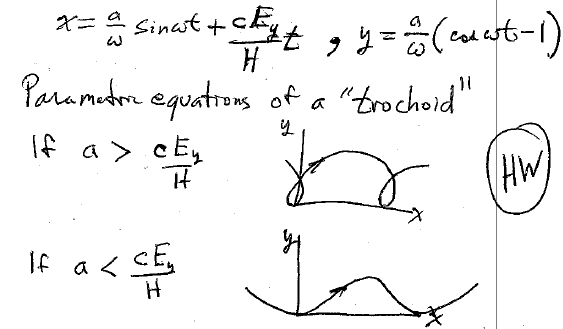 x = a/ω sin ωt + cE_y/H t , y = a/ω (cos ωt - 1)
Parametric equations of a "trochoid"
If a > cE_y/H
y
x
HW
If a < cE_y/H
y
x